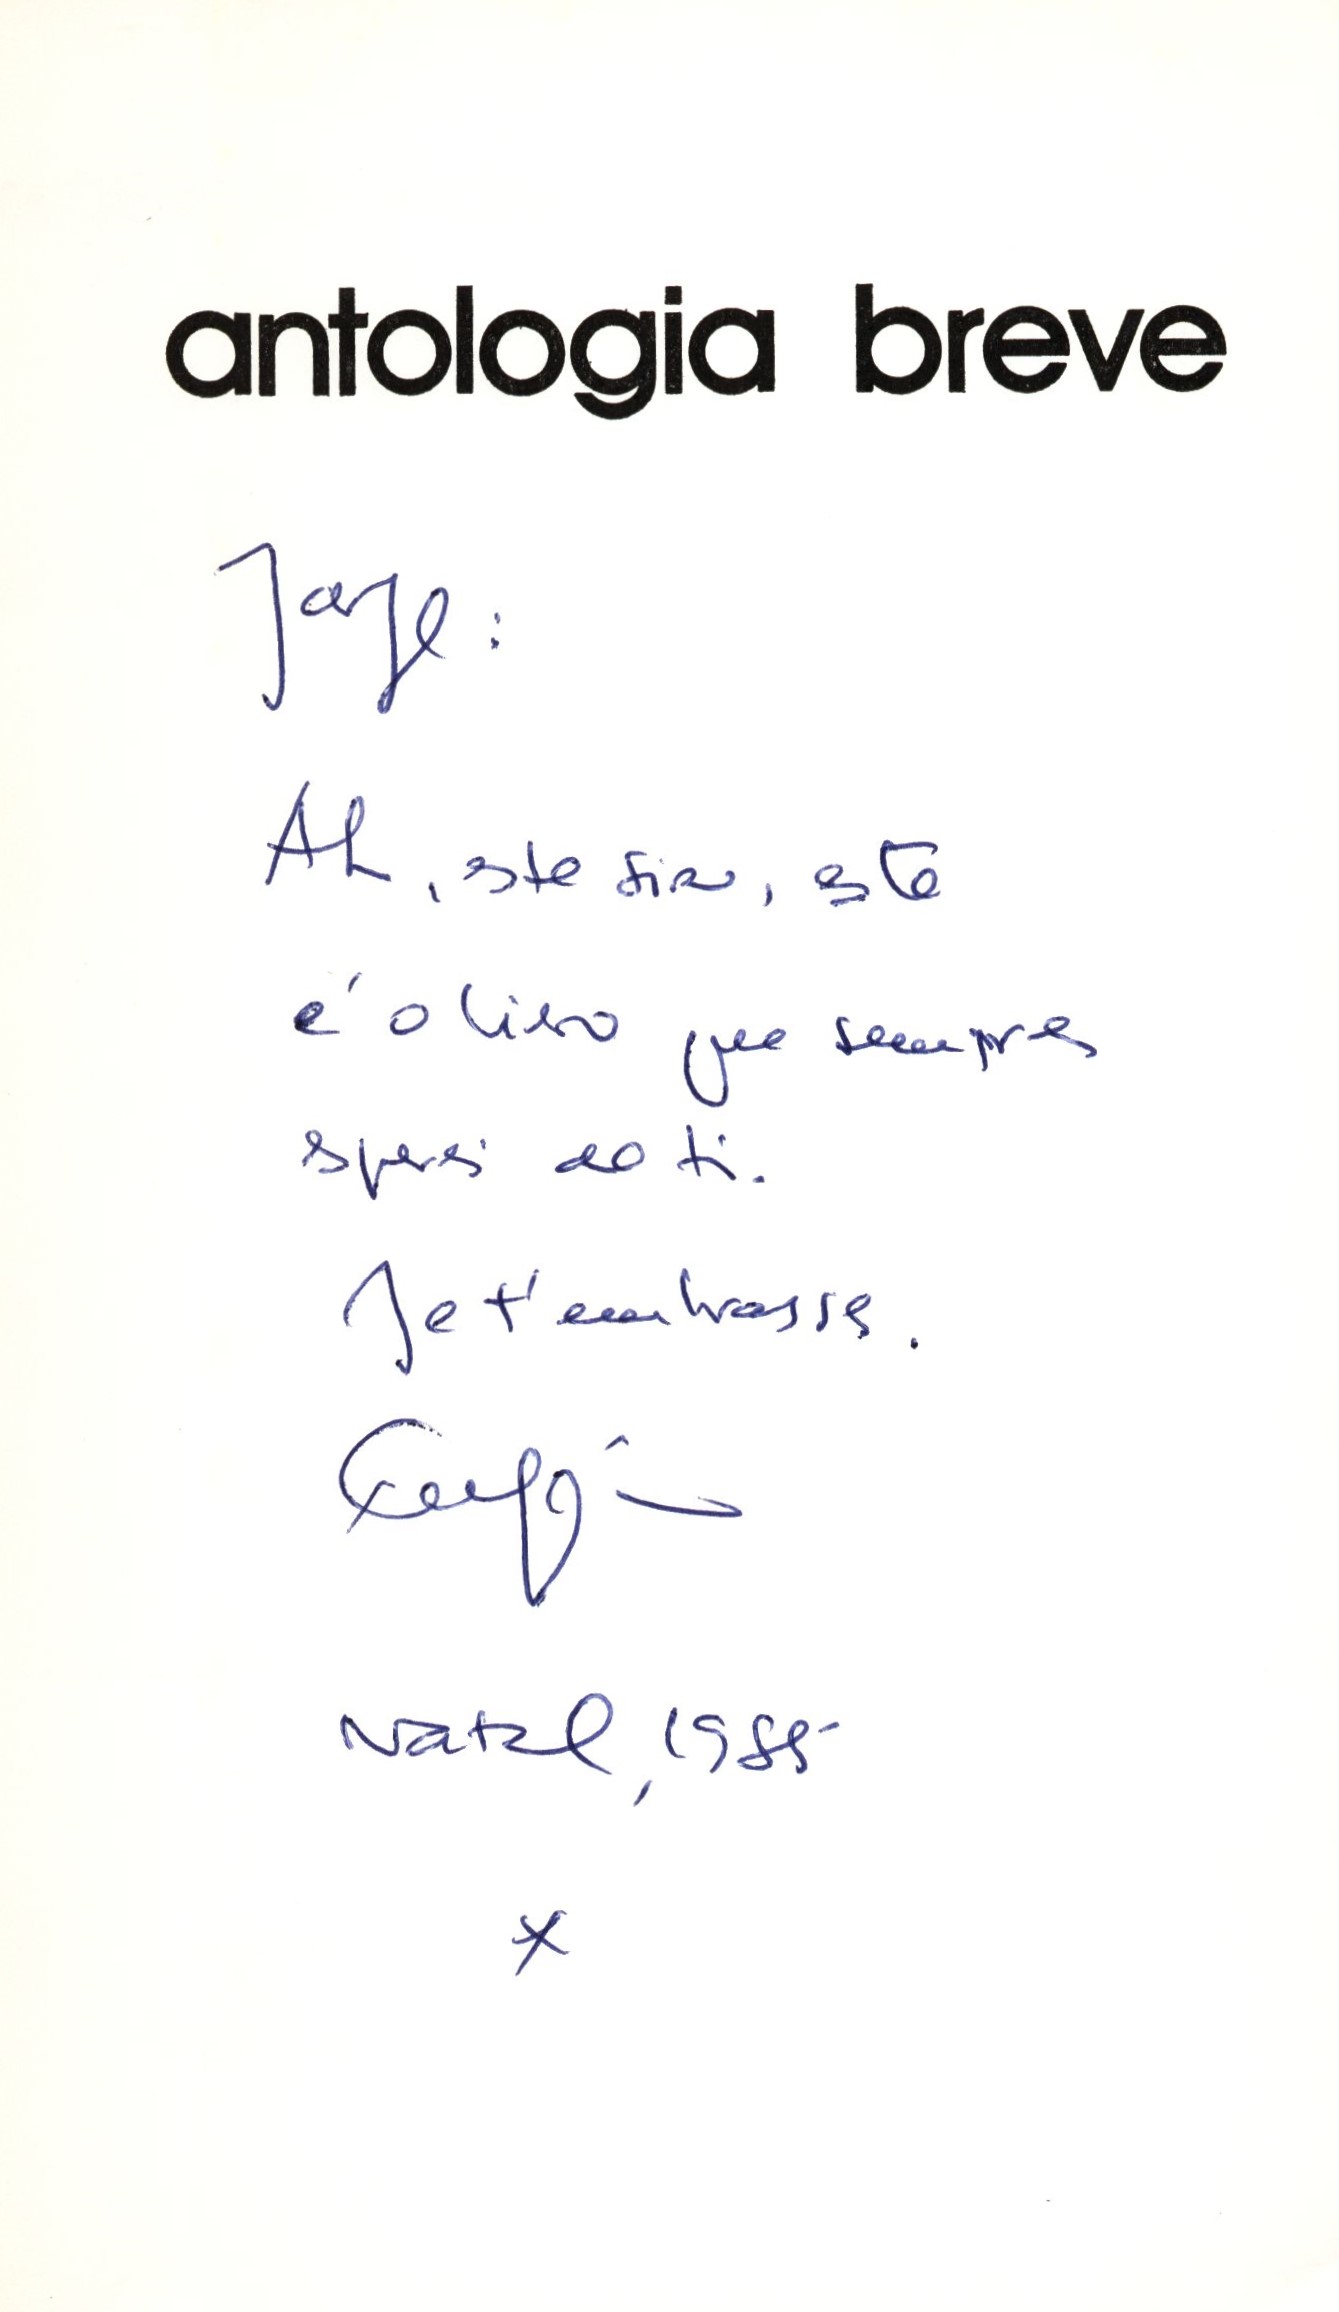 antologia breve
Jorge:
Ah, este sim, este
é o livro que sempre
esperei de ti.
Je t'embrasse.
Natal, 1985
*